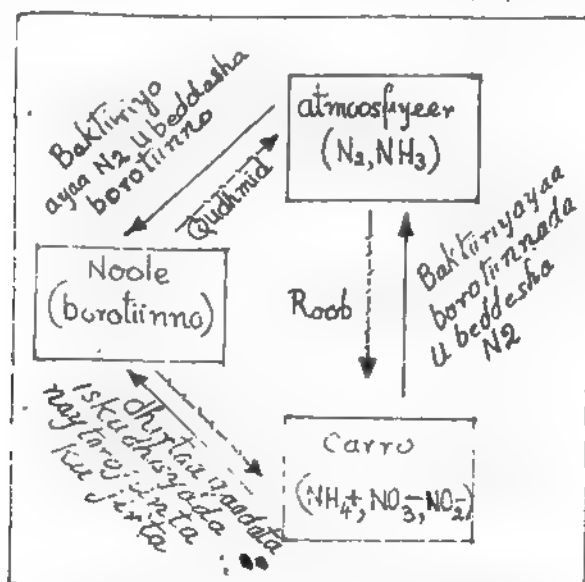 Baktiiriyo
ayaa N2 U beddesha
borotiinno
Qudhmid
atmoosfiyeer
(N₂, NH₃)
Noole
(borotiinno)
Roob
Baktiiriyo ayaa
borotiinnada
U beddesha
N2
dhirtaa
iskudhisyada
naytarojiinta
ku jirta
Carro
(NH₄+, NO₃-, NO₂-)